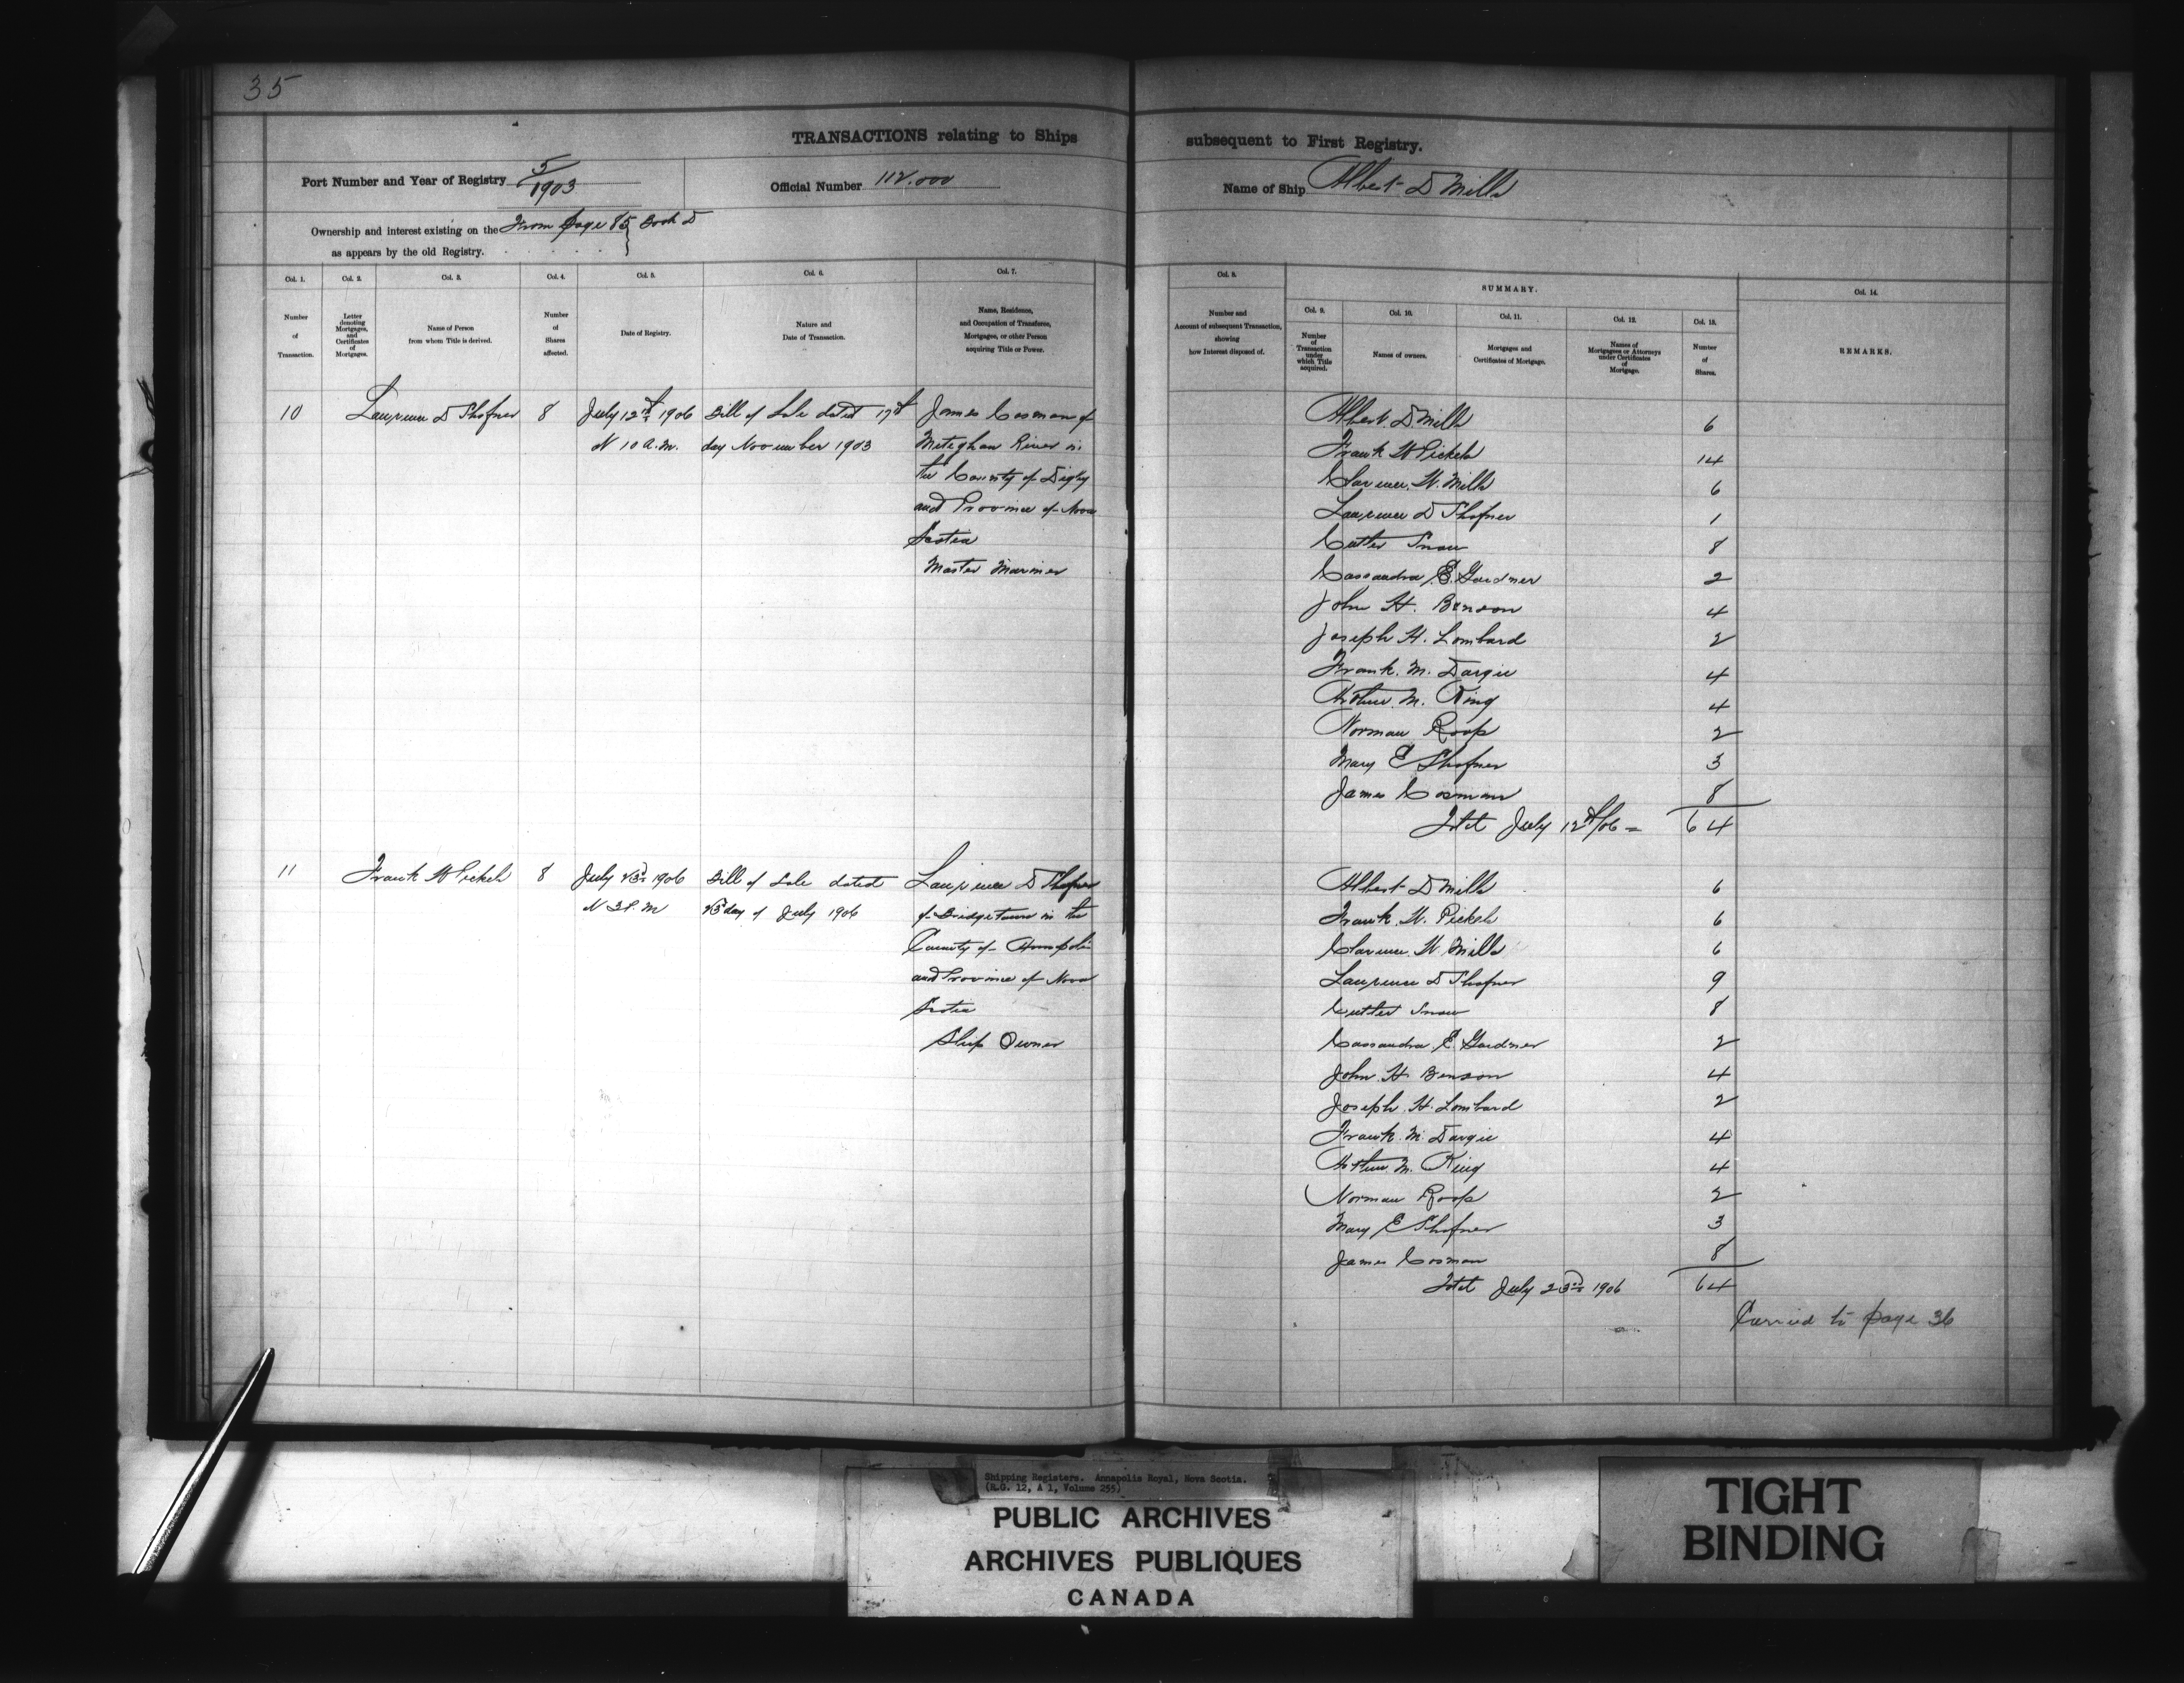 35
TRANSACTIONS relating to Ships subsequent to First Registry.
Port Number and Year of Registry 5/1903
Official Number 112.000
Name of Ship Albert D Mills
Ownership and interest existing on the From page 85 } Book D
as appears by the old Registry.
Col. 1. Col. 2. Col. 3. Col. 4. Col. 5. Col. 6. Col. 7. Col. 8. SUMMARY. Col. 14.
Col. 9. Col. 10. Col. 11. Col. 12. Col. 13.
Number of Transaction.
Letter denoting Mortgages, and Certificates of Mortgages.
Name of Person from whom Title is derived.
Number of Shares affected.
Date of Registry.
Nature and Date of Transaction.
Name, Residence, and Occupation of Transferee, Mortgagee, or other Person acquiring Title or Power.
Number and Account of subsequent Transaction, showing how Interest disposed of.
Number of Transaction under which Title acquired.
Names of owners.
Mortgages and Certificates of Mortgage.
Names of Mortgagees or Attorneys under Certificates of Mortgage.
Number of Shares.
REMARKS.
10 Laurence D Shafner 8 July 12th 1906 Bill of Sale dated 17th James Cosman of
10 A.M. day November 1903 Meteghan River in
the County of Digby
and Province of Nova
Scotia
Master Mariner
Albert D Mills 6
Frank W Pickels 14
Clarence W. Mills 6
Laurence D Shafner 1
Cutler Snow 8
Cassandra E. Gardner 2
John H. Benson 4
Joseph H. Lombard 2
Frank. M. Dargie 4
Arthur. M. King 4
Norman Roop 2
Mary E Shafner 3
James Cosman 8
Total July 12th/06 = 64
11 Frank W Pickels 8 July 23rd 1906 Bill of Sale dated Laurence D Shafner
3 P.M 23rd day of July 1906 of Bridgetown in the
County of Annapolis
and Province of Nova
Scotia
Ship Owner
Albert D Mills 6
Frank. W. Pickels 6
Clarence. W. Mills 6
Laurence D Shafner 9
Cutler Snow 8
Cassandra E. Gardner 2
John. H. Benson 4
Joseph. H. Lombard 2
Frank. M. Dargie 4
Arthur. M. King 4
Norman Roop 2
Mary E Shafner 3
James Cosman 8
Total July 23rd 1906 64
Carried to page 36
Shipping Registers. Annapolis Royal, Nova Scotia.
(R.G. 12, A 1, Volume 255)
PUBLIC ARCHIVES
ARCHIVES PUBLIQUES
CANADA
TIGHT
BINDING